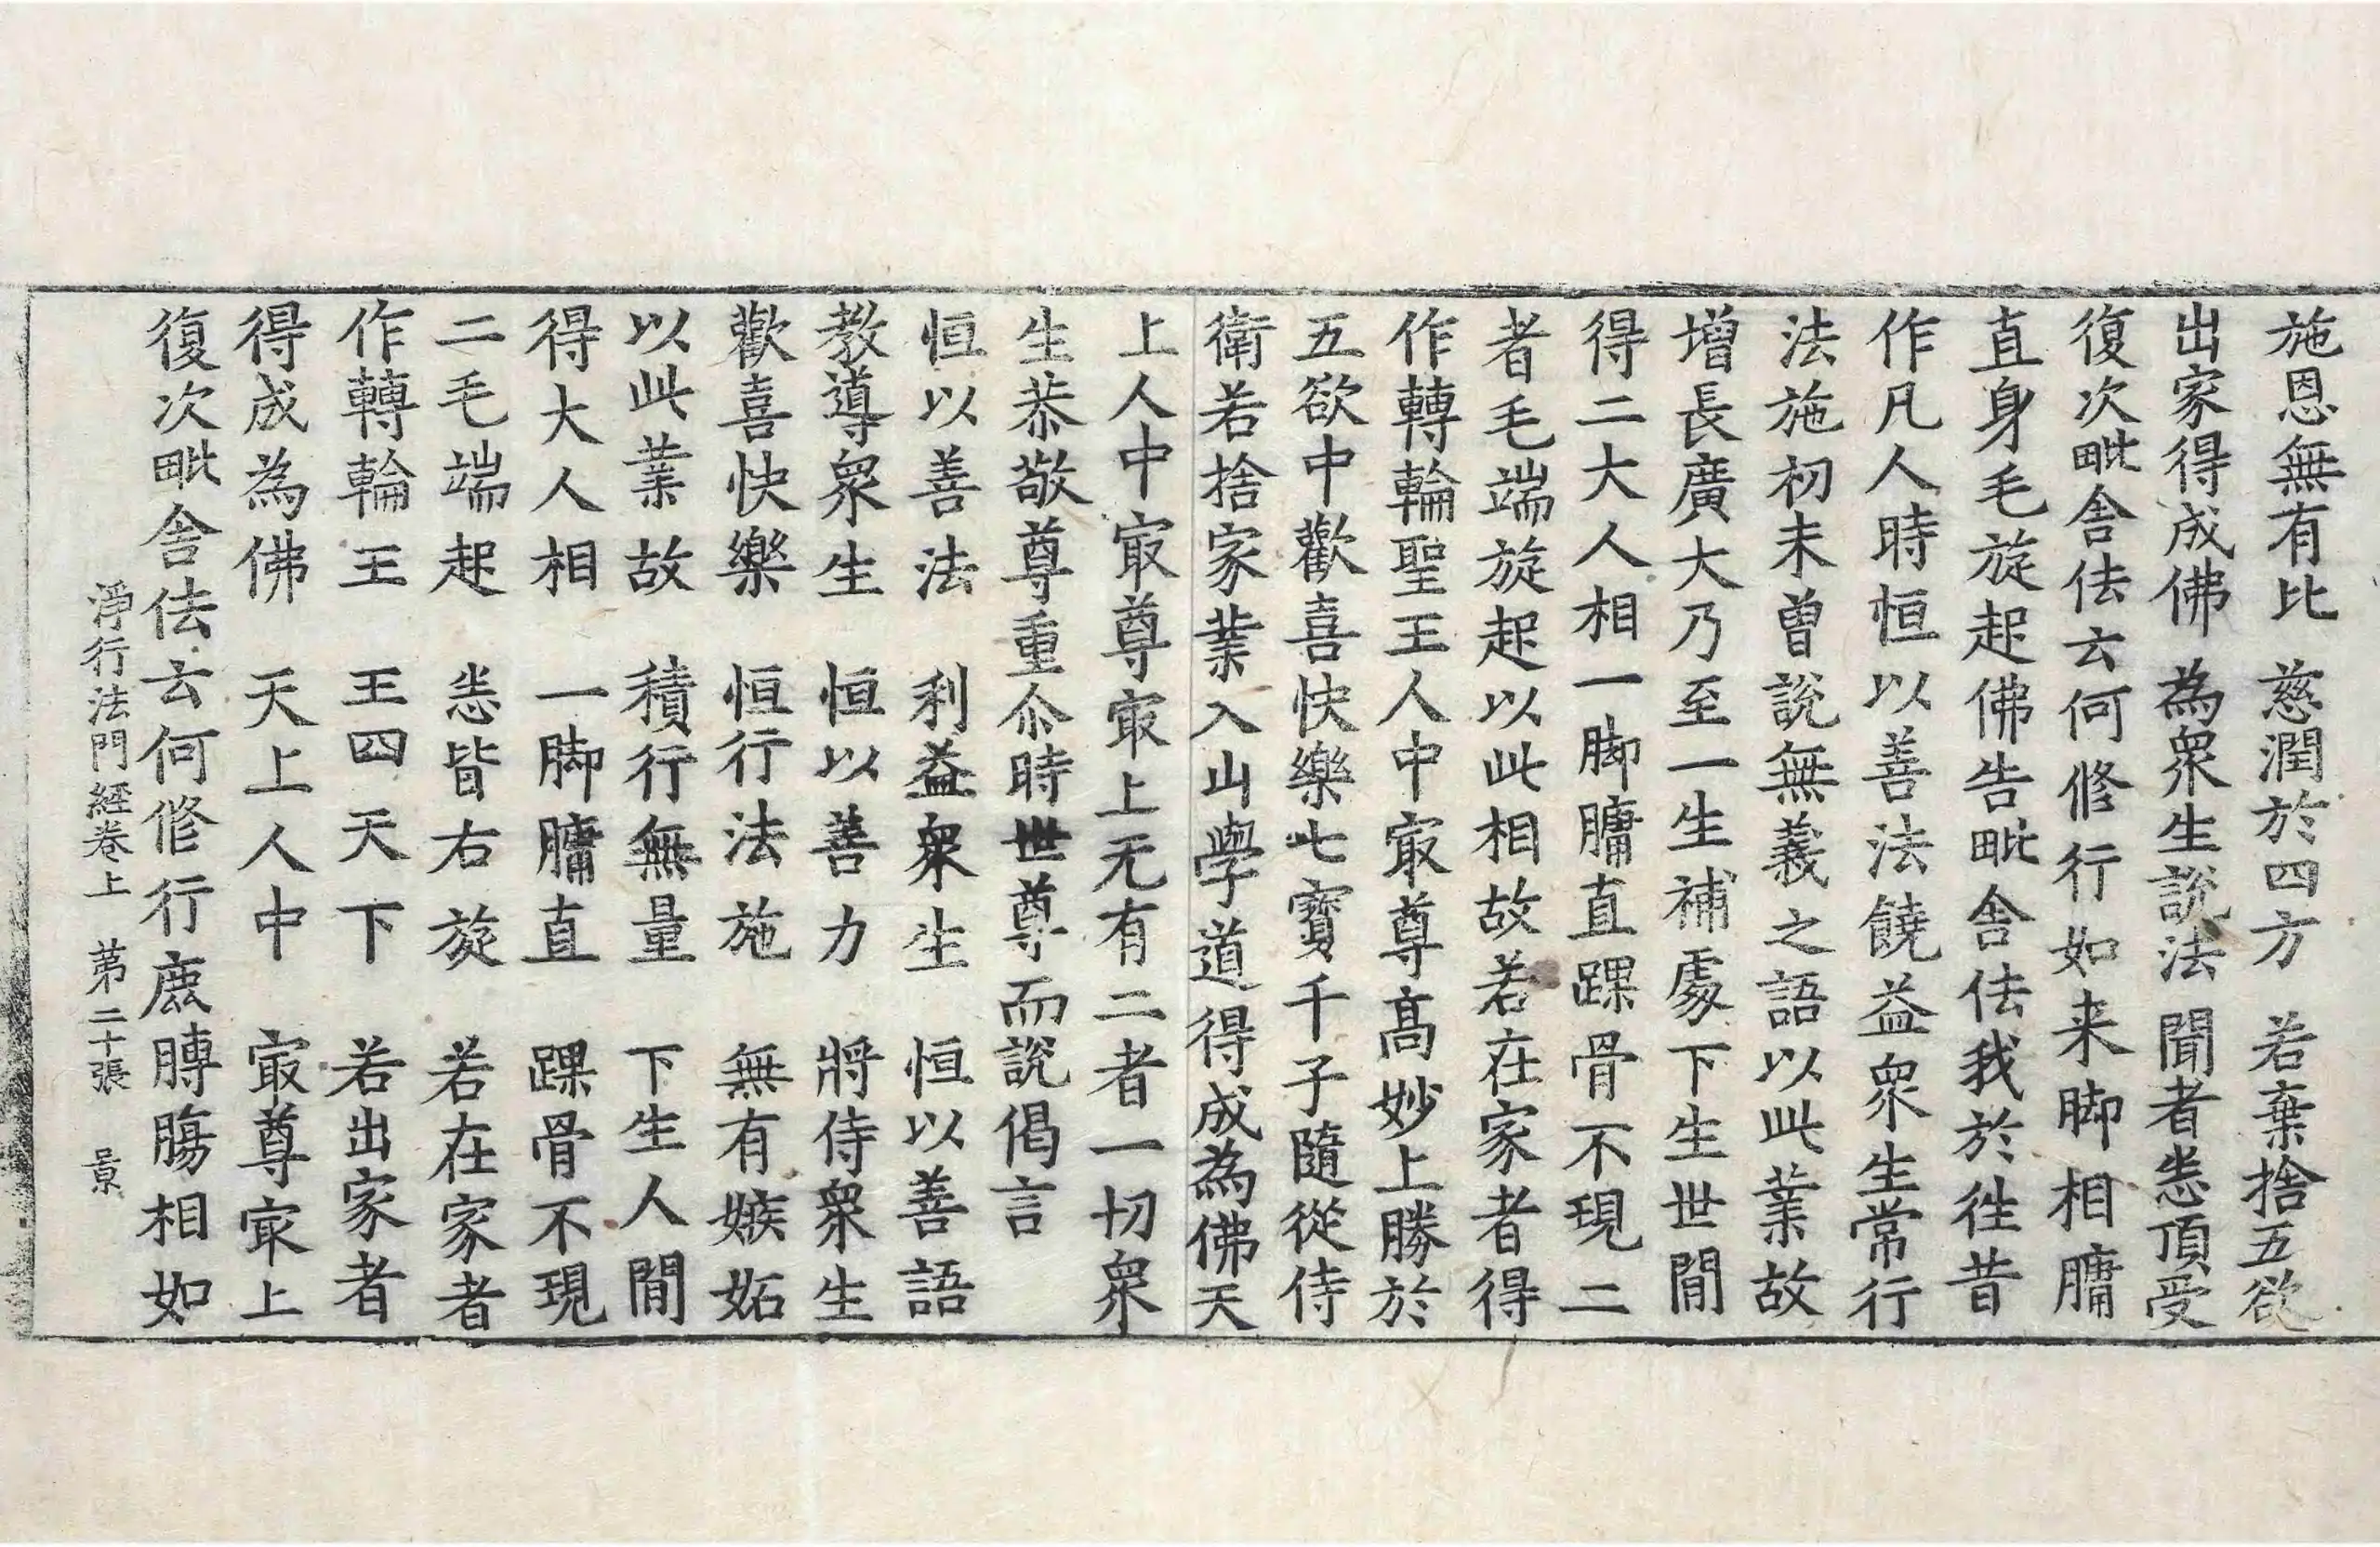 施恩無有比 慈潤於四方 若棄捨五欲
出家得成佛 為衆生說法 聞者悉頂受
復次毗舍佉云何修行如来脚相𦟛
直身毛旋起佛告毗舍佉我於往昔
作凡人時恒以善法饒益衆生常行
法施初未曾說無義之語以此業故
增長廣大乃至一生補處下生世間
得二大人相一脚𦟛直踝骨不現二
者毛端旋起以此相故若在家者得
作轉輪聖王人中冣尊高妙上勝於
五欲中歡喜快樂七寶千子隨從侍
衛若捨家業入山學道得成為佛天
上人中冣尊冣上无有二者一切衆
生恭敬尊重尒時世尊而說偈言
恒以善法 利益衆生 恒以善語
教導衆生 恒以善力 將侍衆生
歡喜快樂 恒行法施 無有嫉妬
以此業故 積行無量 下生人間
得大人相 一脚𦟛直 踝骨不現
二毛端起 悉皆右旋 若在家者
作轉輪王 王四天下 若出家者
得成為佛 天上人中 冣尊冣上
復次毗舍佉云何修行鹿膞腸相如
淨行法門經卷上 第二十張 景